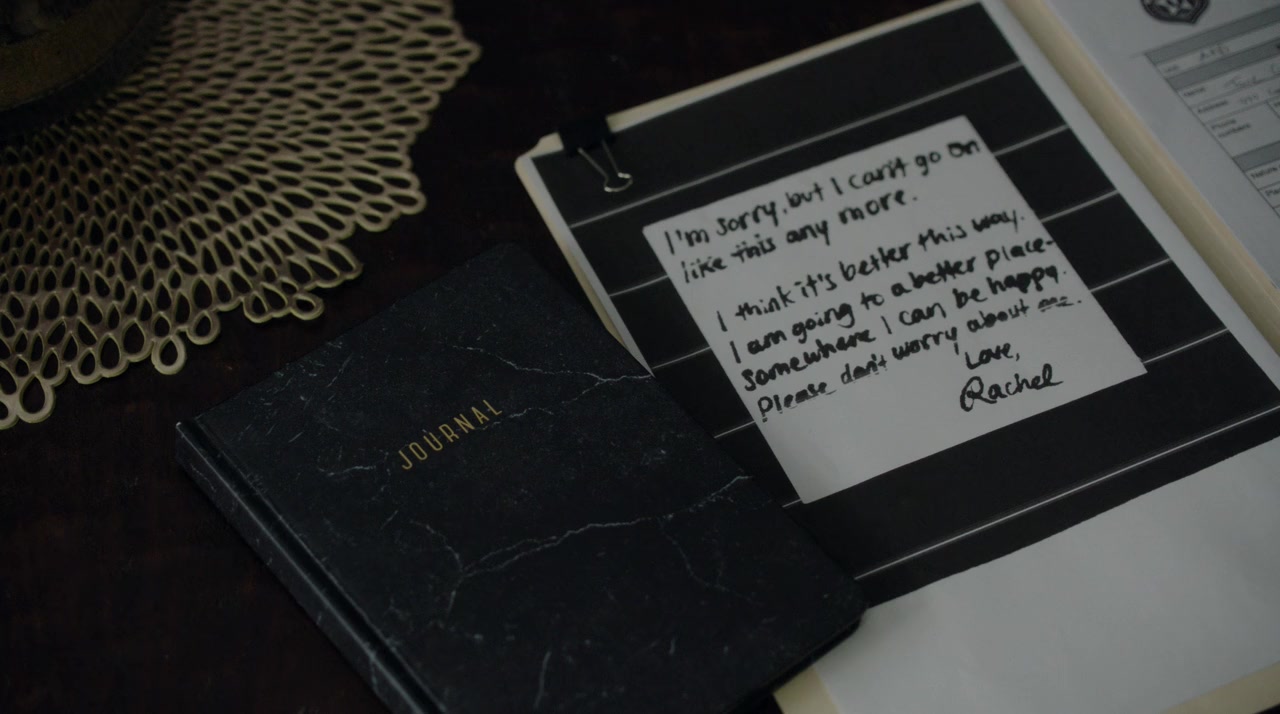 JOURNAL
I'm sorry, but I can't go on
like this any more.
I think it's better this way.
I am going to a better place-
somewhere I can be happy.
Please don't worry about me.
Love,
Rachel
Name
Address
Phone
numbers